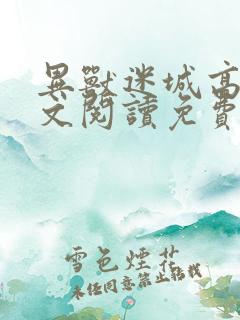 異獸迷城高
文閱讀免費
雪色煙花
未經同意禁止轉載